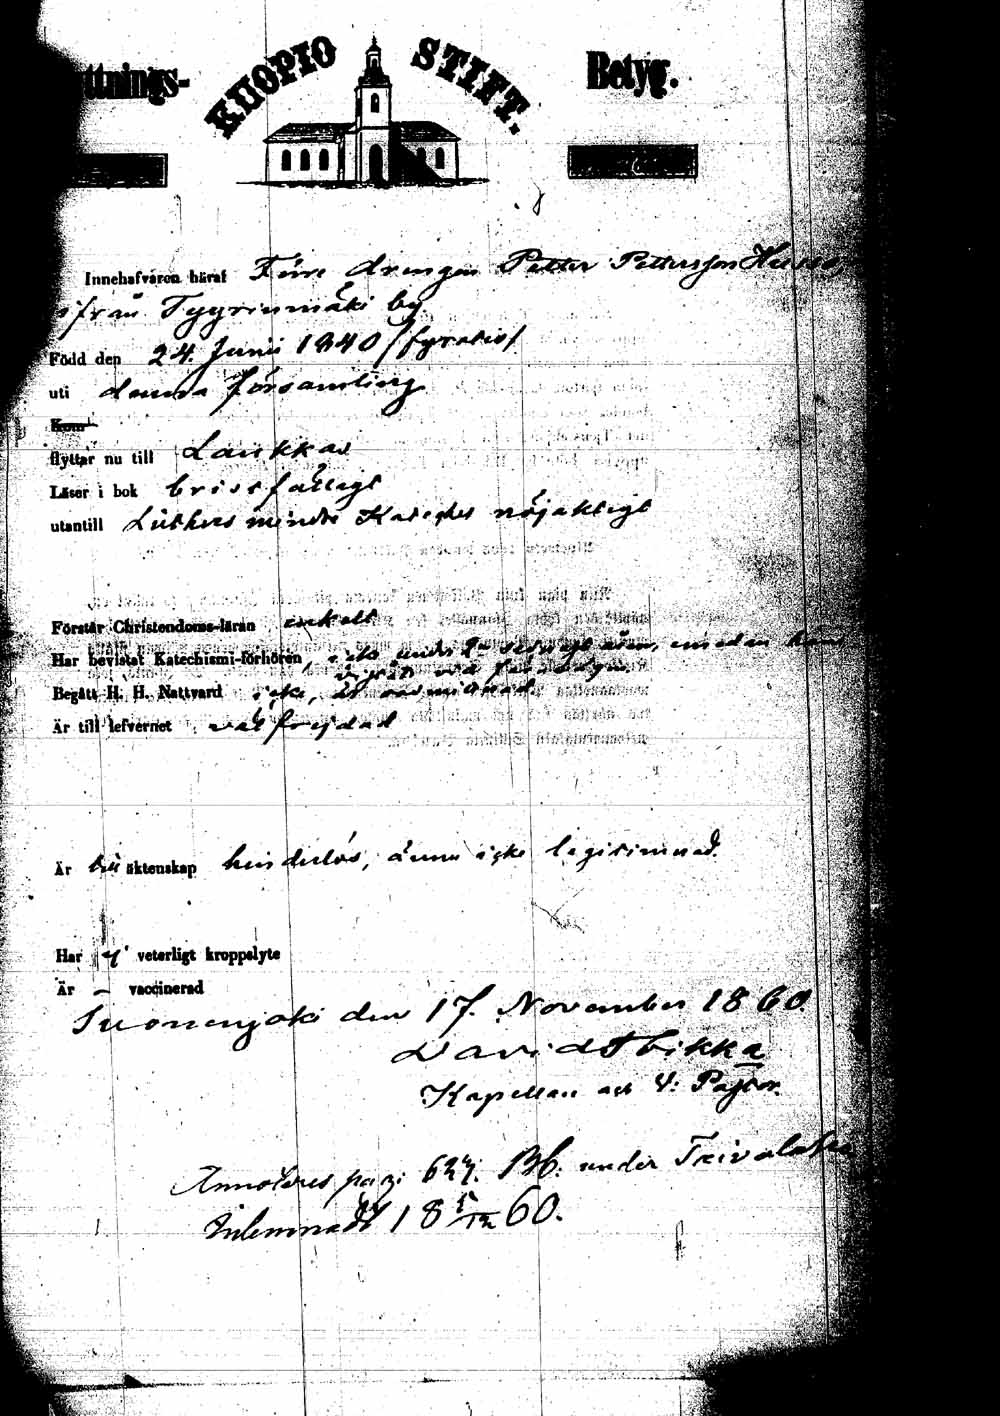 ttnings- KUOPIO STIFT. Betyg.
Innehafvaren häraf Före drengen Petter Pettersson
ifrån Tyyrinmäki by
Född den 24. Junii 1840 /fyratio/
uti denna församling
Kom
flyttar nu till Laukkas
Läser i bok bristfälligt
utantill Luthers mindre Kateches nöjaktigt
Förstår Christendoms-läran enkelt
Har bevistat Katechismi-förhören, icke under åren, emedan han
vistats vid
Begått H. H. Nattvard icke, är oadmitterad
Är till lefvernet välfrejdad
Är till äktenskap hinderlös, ännu icke legitimerad.
Har ej veterligt kroppslyte
Är – vaccinerad
Suonenjoki den 17. November 1860.
David
Kapellan och V: Pastor.
Annoteras pagi 627. under
Inlemnadt 18 5/12 60.